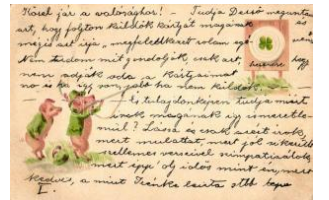 Közel jár a valósághoz! - Tudja Dezső meguntam
azt, hogy folyton küldök kártyát magának
mégis azt írja "megfeledkezett rólam egé-
Nem tudom mit gondoljak, csak azt, hogy
nem adják oda a kártyáimat
no is ha így van jobb ha nem küldök.
És tulajdonképen tudja miért
írok magának így ismeretle-
nül? Lássa és csak azért írok,
mert mulattat, mert jól sikerült
szellemes verseivel szimpatizálok,
mert épp oly idős mint én, mert
kedves, a mint Irénke leírta stbb.
I.